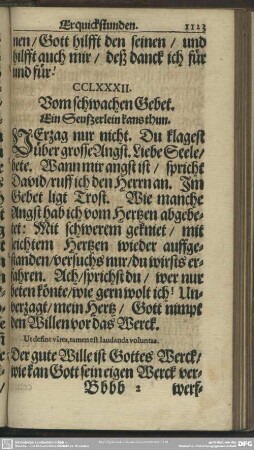 Erquickstunden. 1123
nen/ Gott hilfft den seinen/ und
hilfft auch mir/ deß danck ich für
und für!
CCLXXXII.
Vom schwachen Gebet.
Ein Seufzerlein kans thun.
VErzag nur nicht. Du klagest
über grosse Angst. Liebe Seele/
bete. Wann mir angst ist/ spricht
David/ ruff ich den Herrn an. Im
Gebet ligt Trost. Wie manche
Angst hab ich vom Hertzen abgebe-
tet: Mit schwerem gekniet/ mit
leichtem Hertzen wieder auffge-
standen/ versuchs nur/ du wirsts er-
fahren. Ach/ sprichst du/ wer nur
beten könte/ wie gern wolt ich! Un-
verzagt/ mein Hertz/ Gott nimpt
den Willen vor das Werck.
Ut desint vires, tamen est laudanda voluntas.
Der gute Wille ist Gottes Werck/
wie kan Gott sein eigen Werck ver-
Bbbb 2 werf-